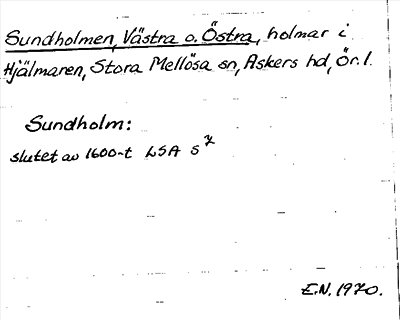 Sundholmen, Västra o. Östra, holmar i
Hjälmaren, Stora Mellösa sn, Askers hd, Ör. l.
Sundholm:
slutet av 1600-t LSA S 7
E.N. 1970.